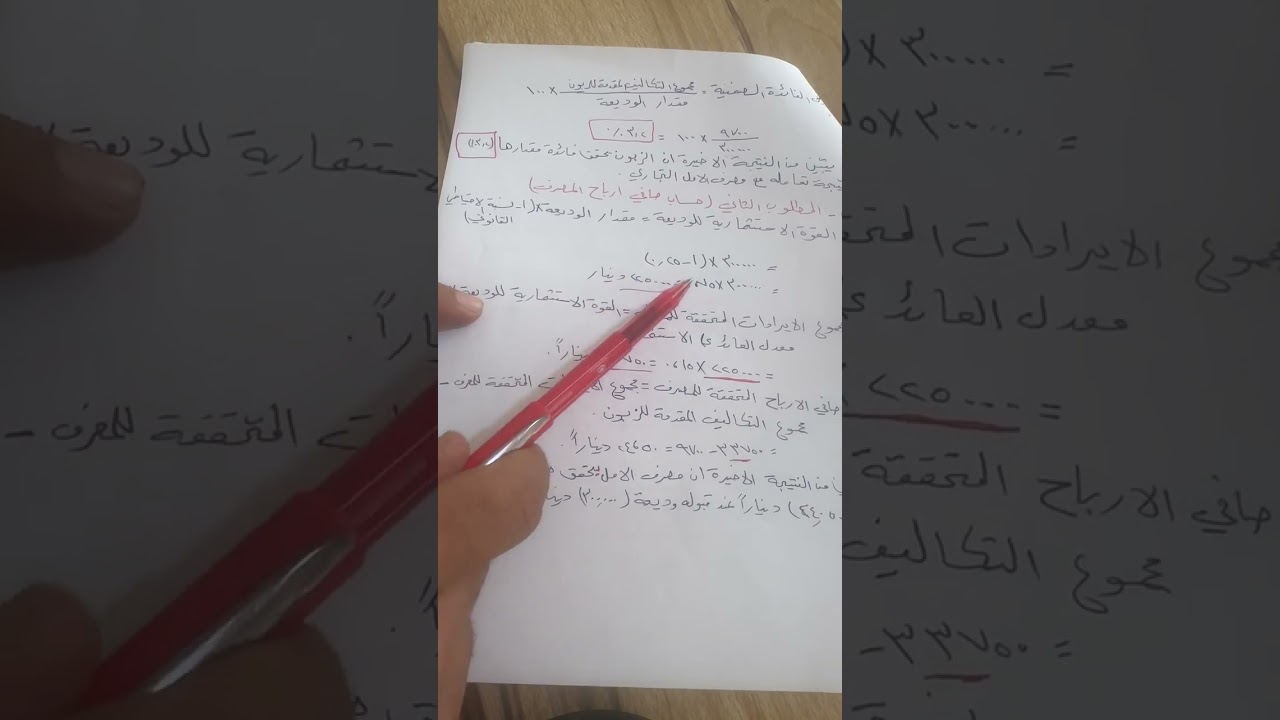 الفائدة الضمنية = مجموع التكاليف المقدمة للزبون / مقدار الوديعة × ١٠٠
٩٧٠٠ / ٣٠٠٠٠٠ × ١٠٠ = ٣,٢٪
يتبين من النتيجة الاخيرة ان الزبون يحقق فائدة مقدارها (٣,٢٪)
نتيجة تعامله مع مصرف الامل التجاري.
- المطلوب الثاني (حساب صافي ارباح المصرف)
القوة الاستثمارية للوديعة = مقدار الوديعة × (١ - نسبة الاحتياطي
القانوني)
= ٣٠٠٠٠٠ × (١ - ٠,٢٥)
= ٣٠٠٠٠٠ × ٧٥ ٢٢٥٠٠٠ دينار
مجموع الايرادات المتحققة = القوة الاستثمارية للوديعة
معدل العائد على
= ٢٢٥٠٠٠ × ٠,١٥ = ٧٥٠ ديناراً.
صافي الارباح المتحققة للمصرف = مجموع المتحققة للمصرف -
مجموع التكاليف المقدمة للزبون.
= ٣٣٧٥٠ - ٩٧٠٠ = ٢٤٠٥٠ ديناراً.
من النتيجة الاخيرة ان مصرف الامل يحقق
(٢٤٠٥٠) ديناراً عند قبوله وديعة (٣٠٠,٠٠٠)